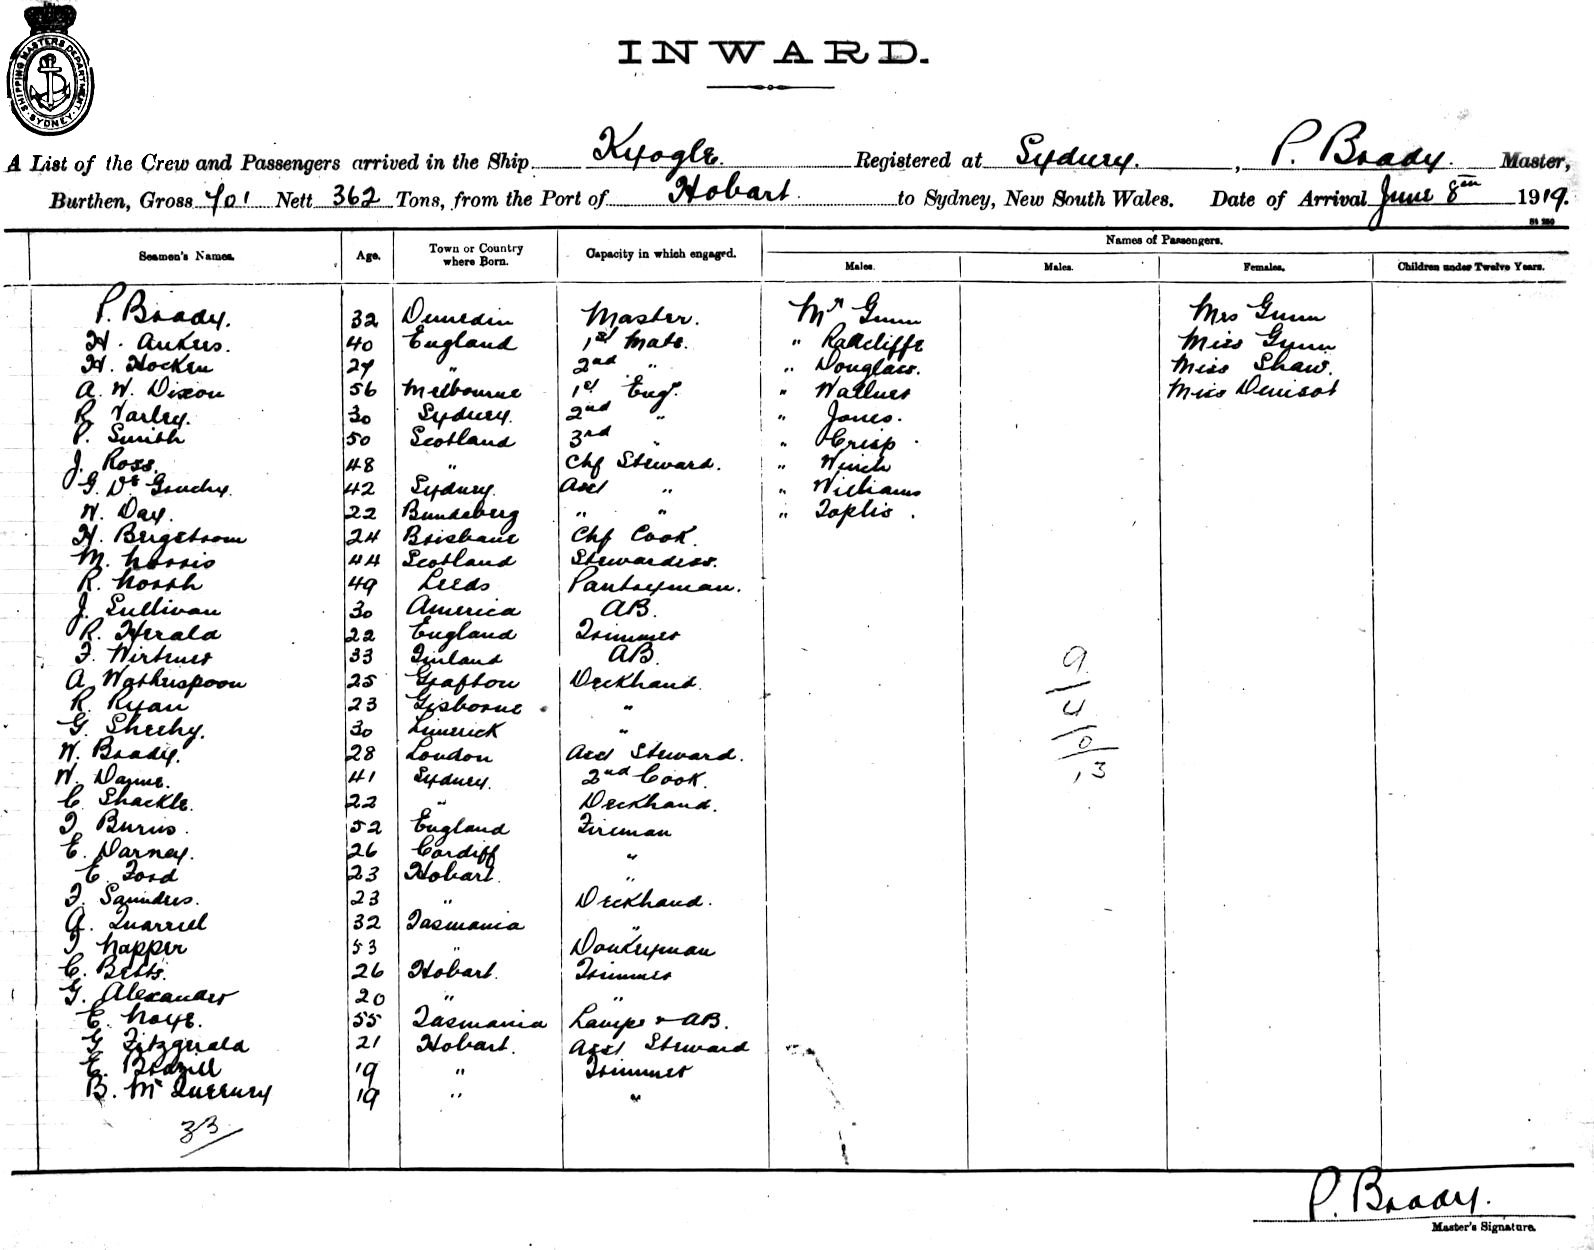 SHIPPING MASTERS DEPARTMENT · SYDNEY ·
INWARD.
A List of the Crew and Passengers arrived in the Ship Kyogle. Registered at Sydney. , P. Brady. Master,
Burthen, Gross 701 Nett 362 Tons, from the Port of Hobart. to Sydney, New South Wales. Date of Arrival June 8th 1919.
Names of Passengers.
Seamen's Names. Age. Town or Country where Born. Capacity in which engaged. Males. Males. Females. Children under Twelve Years.
P. Brady. 32 Dunedin Master. Mr Gunn Mrs Gunn
H. Ankers. 40 England 1st Mate. " Radcliffe Miss Gunn
H. Hocken 27 " 2nd " " Douglass. Miss Shaw.
A. W. Dixon 56 Melbourne 1st Eng. " Miss Denisot
R. Varley. 30 Sydney. 2nd " " Jones.
P. Smith 50 Scotland 3rd " " Crisp
J. Ross. 48 " Chf Steward. " Winch
G. De Gruchy. 42 Sydney. Asst " " Williams
W. Day. 22 Bundeberg " " " Toplis.
H. Bergstrom 24 Brisbane Chf Cook.
M. Norris 44 Scotland Stewardess.
R. North 49 Leeds Pantryman.
J. Sullivan 30 America AB.
R. Herald 22 England Trimmer
F. 33 Finland AB.
A Watherspoon 25 Grafton Deckhand.
R. Ryan 23 Gisborne "
G. Sheehy. 30 Limerick "
W. Brady. 28 London Asst Steward.
W. Dayne. 41 Sydney. 2nd Cook.
C. Shackle. 22 " Deckhand.
T Burns. 52 England Fireman
E. Darney. 26 Cardiff "
C. Ford 23 Hobart. "
F. Saunders. 23 " Deckhand.
A. Quarrell 32 Tasmania "
T Napper 53 " Donkeyman
C. Betts. 26 Hobart. Trimmer
G. Alexander 20 " "
C. Noye. 55 Tasmania Lamps & AB.
G Fitzgerald 21 Hobart. Asst Steward
E. Brazill 19 " Trimmer
B. Mc Queeney 19 " "
33
9
4
0
13
P. Brady.
Master's Signature.